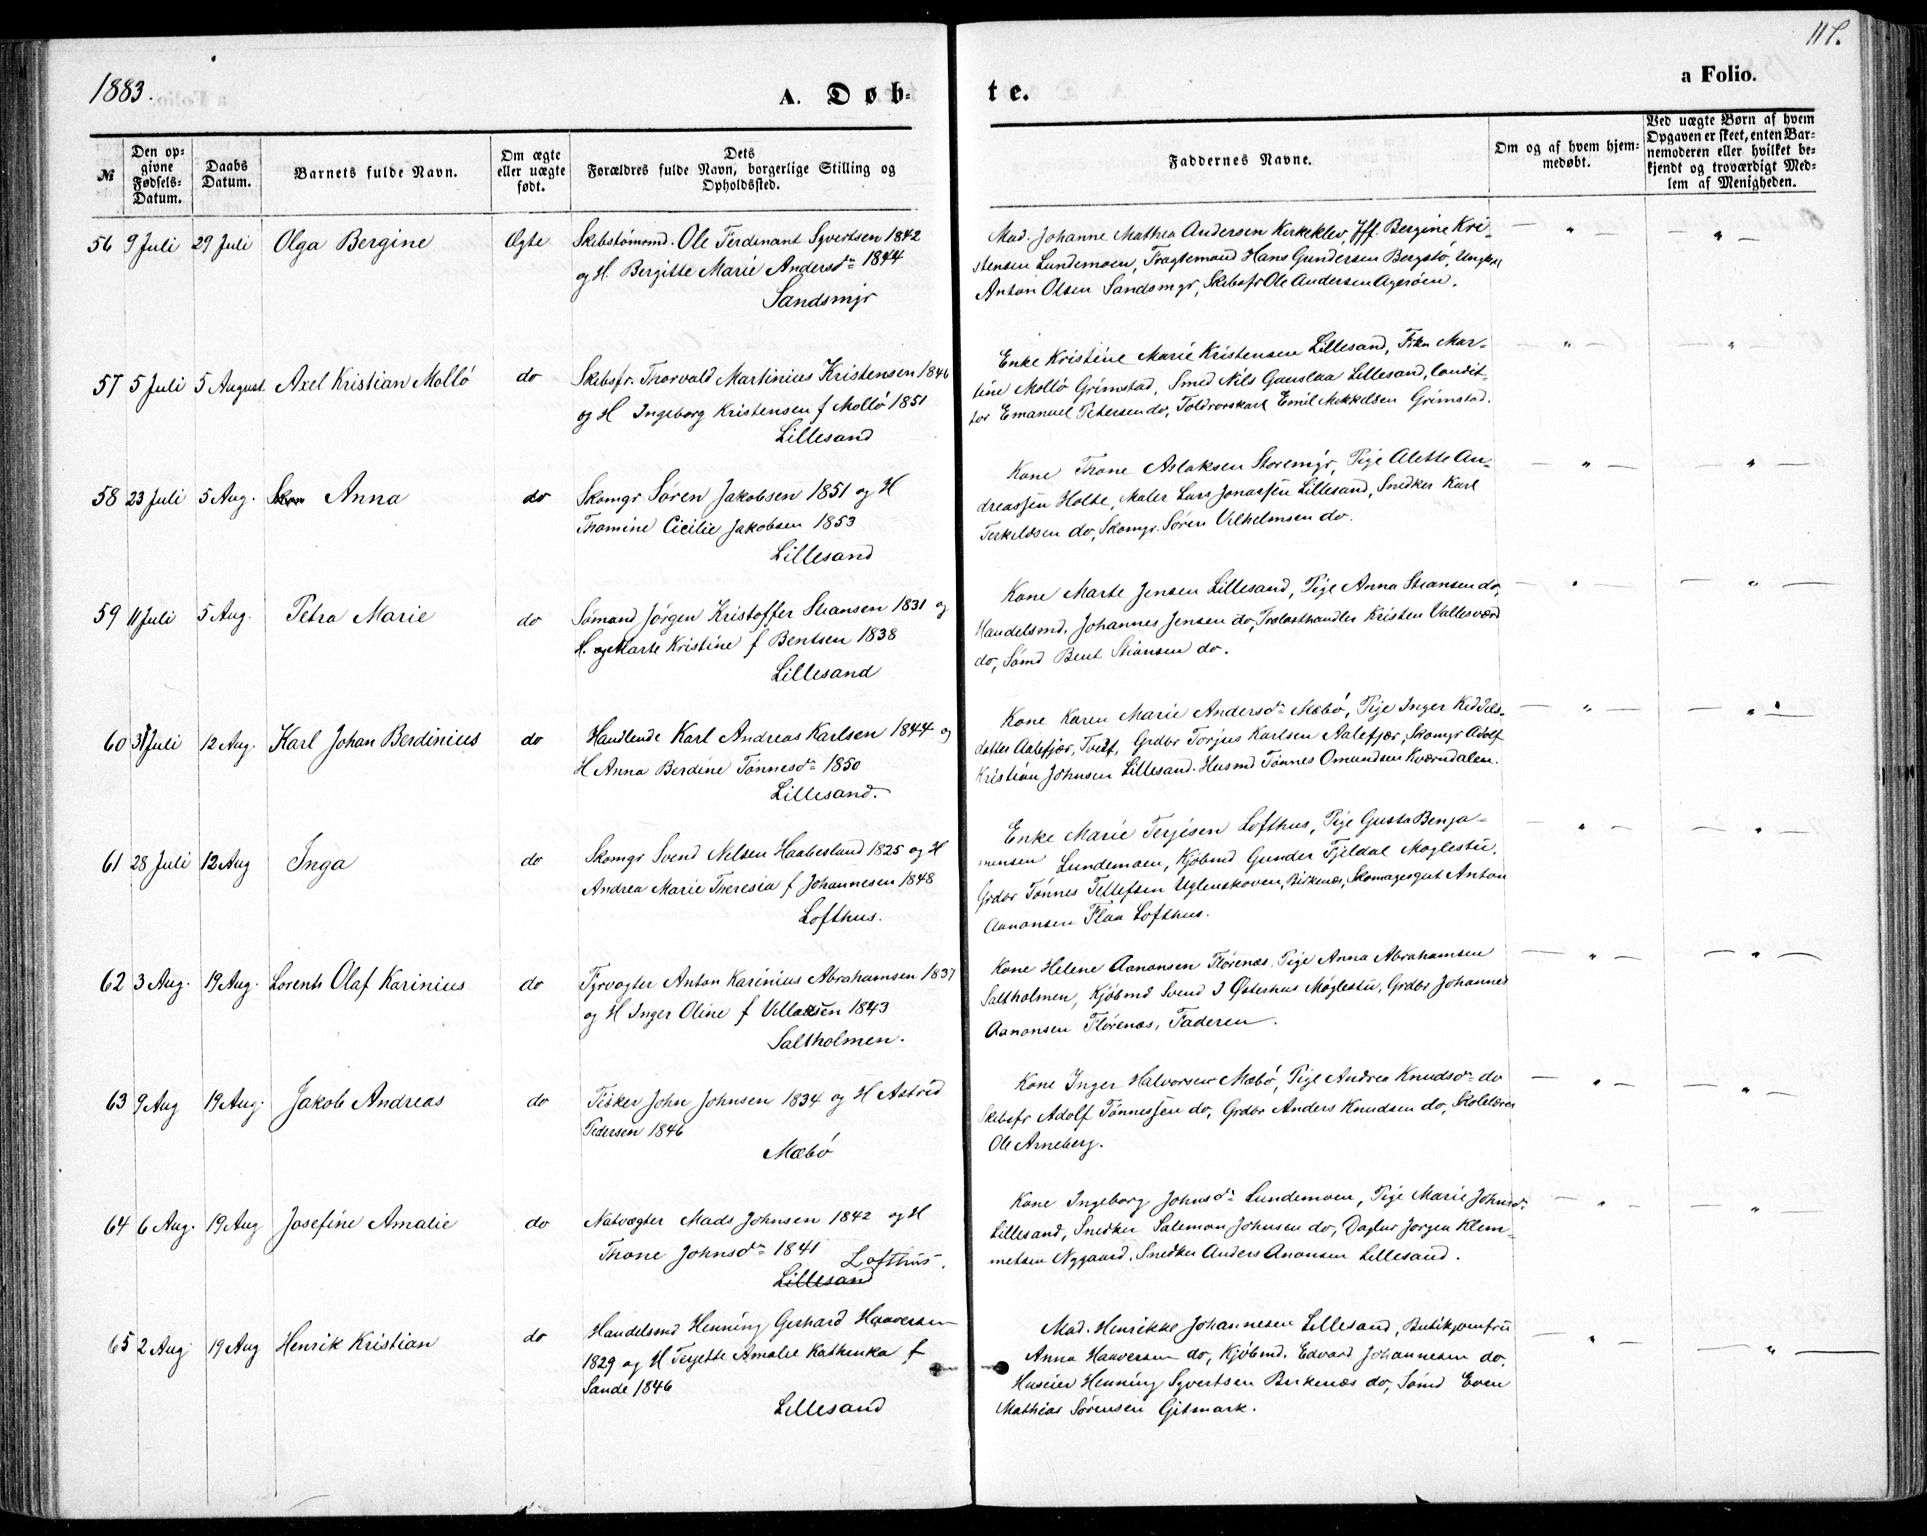 1883.
A. Døb-
te.
a Folio.
№
Den op-
givne
Fødsels-
Datum.
Daabs
Datum.
Barnets fulde Navn.
Om ægte
eller uægte
født.
Dets
Forældres fulde Navn, borgerlige Stilling og
Opholdssted.
Faddernes Navne.
Om og af hvem hjem-
medøbt.
Ved uægte Børn af hvem
Opgaven er skeet, enten Bar-
nemoderen eller hvilket be-
kjendt og troværdigt Med-
lem af Menigheden.
56 9 Juli 29 Juli Olga Bergine Ægte
Skibstømmd. Ole Ferdinant Syvertsen 1842
og H. Bergitte Marie Andersdr 1844
Sandsmyr
Mad. Johanne Mathea Andersen Kirkeklev, Jff. Bergine Kri-
stensen Lundemoen, Fragtemand Hans Gundersen Bergstø, Ungkl
Anton Olsen Sandsmyr, Skibsfr Ole Andersen Agerøen.
57 5 Juli 5 August. Axel Kristian Molló do
Skibsfr. Thorvald Martinius Kristensen 1846
og H Ingeborg Kristensen f Molló 1851
Lillesand
Enke Kristine Marie Kristensen Lillesand, Frkn Mar-
tine Molló Grimstad, Smed Nils Gauslaa Lillesand, Condit-
tor Emanuel Petersen do, Toldrorskarl Emil Mikkelsen Grimstad.
58 23 Juli 5 Aug. Anna do
Skomgr Søren Jakobsen 1851 og H
Thomine Cicilie Jakobsen 1853
Lillesand
Kone Thone Aslaksen Storemyr, Pige Alette An-
dreassen Holte, Maler Lars Jonassen Lillesand, Snedker Karl
Terkildsen do, Skomgr. Søren Vilhelmsen do.
59 11 Juli 5 Aug. Petra Marie do
Sømand Jørgen Kristoffer Stiansen 1831 og
H. og Marte Kristine f Bentsen 1838
Lillesand
Kone Marte Jensen Lillesand, Pige Anna Stiansen do,
Handelsmd. Johannes Jensen do, Trælasthandler Kristen Vallesværd
do, Sømd Bent Stiansen do.
60 31 Juli 12 Aug. Karl Johan Berdinius do
Handlende Karl Andreas Karlsen 1844 og
H Anna Berdine Tønnesdr 1850
Lillesand.
Kone Karen Marie Andersdr Mæbø, Pige Inger Kiddels-
datter Aalefjær, Tveit, Grdbr Torjus Karlsen Aalefjær, Skomgr Adolf
Kristian Johnsen Lillesand. Husmd Tønnes Omundsen Kværndalen.
61 28 Juli 12 Aug Inga do
Skomgr Svend Nilsen Haabesland 1825 og H
Andrea Marie Theresia f Johannesen 1848
Lofthus.
Enke Marie Terjesen Lofthus, Pige Gusta Benja-
mensen Lundemoen, Kjøbmd Gunder Fjeldal Moglestu,
Grdbr Tønnes Tellefsen Uglenskoven, Birkenæs, Skomagergut Anton
Aanonsen Flaa Lofthus.
62 3 Aug. 19 Aug. Lorents Olaf Karinius do
Fyrvogter Anton Karinius Abrahamsen 1837
og H Inger Oline f Villadsen 1843
Saltholmen.
Kone Helene Aanonsen Flørenæs, Pige Anna Abrahamsen
Saltholmen, Kjøbmd Svend I Østerhus Møglestu, Grdbr Johannes
Aanonsen Flørenæs, Faderen.
63 9 Aug 19 Aug. Jakob Andreas do
Fisker John Johnsen 1834 og H Astrid
Pedersen 1846
Mæbø
Kone Inger Halvorsen Mæbø, Pige Andrea Knudsdr do
Skibsfr Adolf Tønnessen do, Grdbr Anders Knudsen do, Skolelærer
Ole Arneberg.
64 6 Aug. 19 Aug Josefine Amalie do
Natvægter Mads Johnsen 1842 og H
Thone Johnsdr 1841
Lofthus.
Lillesand
Kone Ingeborg Johnsdr Lundemoen, Pige Marie Johnsdr
Lillesand, Snedker Salemon Johnsen do, Daglnr Jørgen Klem-
metsen Nygaard, Snedker Anders Anonsen Lillesand.
65 2 Aug 19 Aug Henrik Kristian do
Handelsmd Henning Gerhard Haaversen
1829 og H Terjette Amalie Kathinka f
Sande 1846
Lillesand
Mad. Henrikke Johannesen Lillesand, Butikjomfru
Anna Haaversen do, Kjøbmd. Edvard Johannesen do.
Huseier Henning Syvertsen Birkenæs do, Sømd Even
Mathias Sørensen Gitmark.